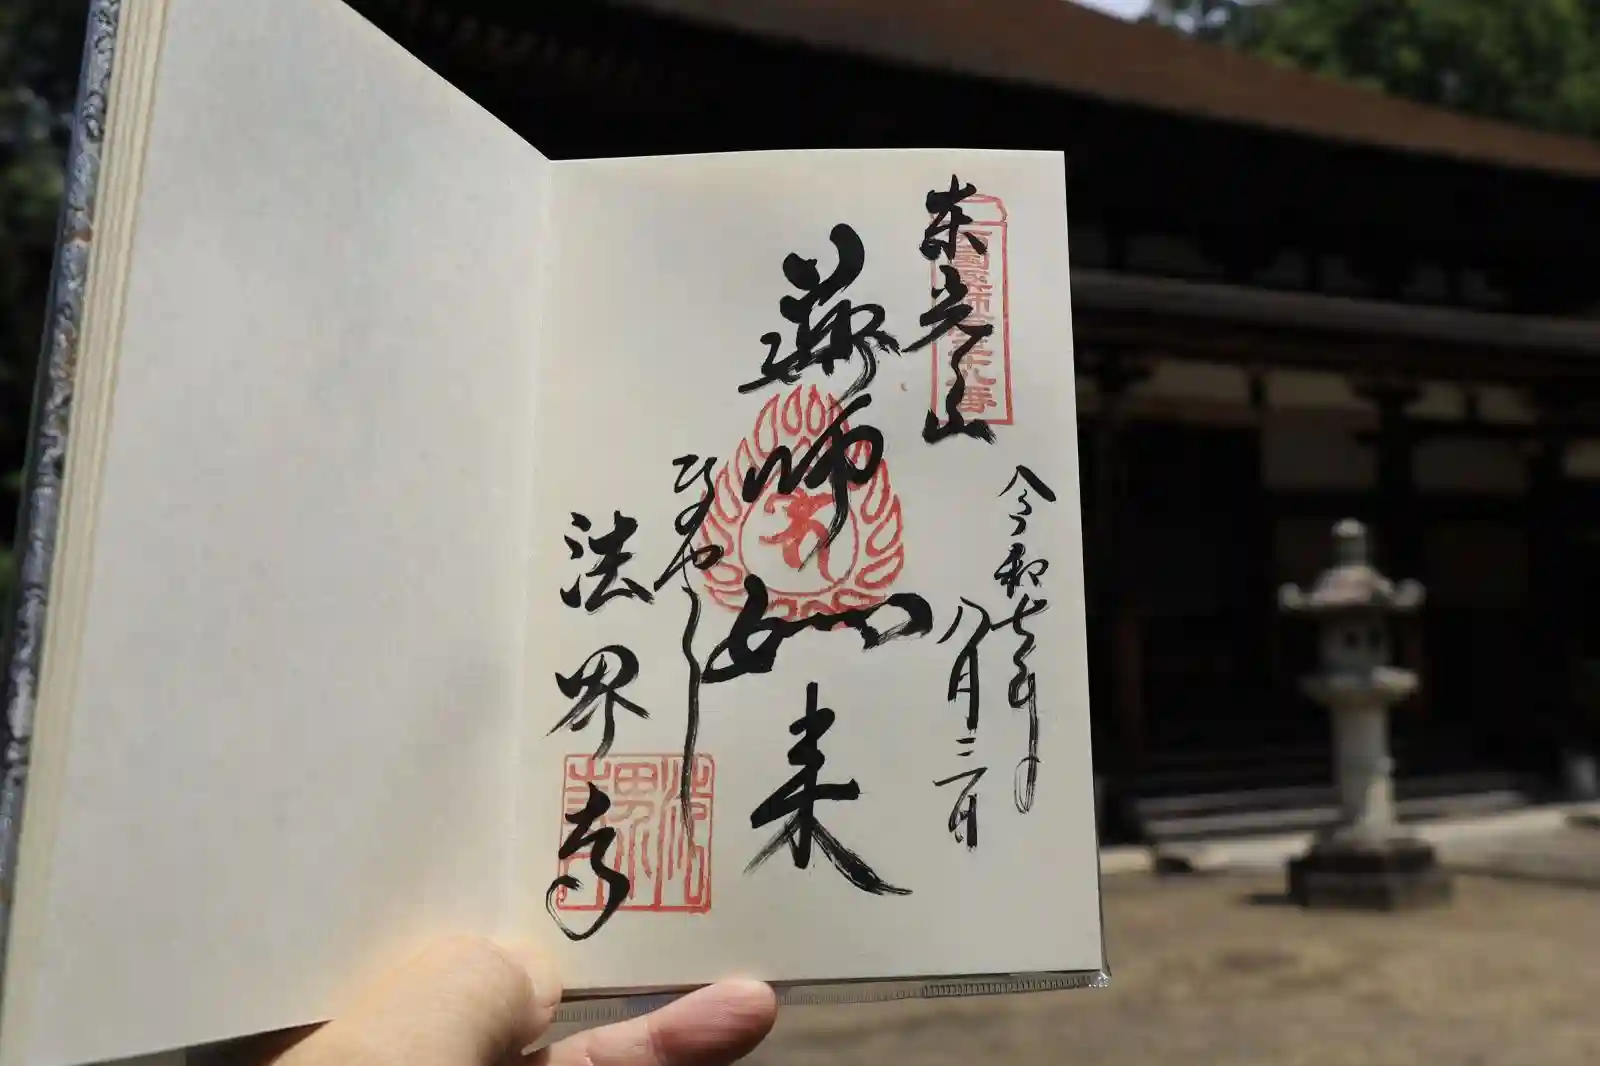 令和七年
八月三日
東光山
薬師如来
ひのやくし
法界寺
法界寺